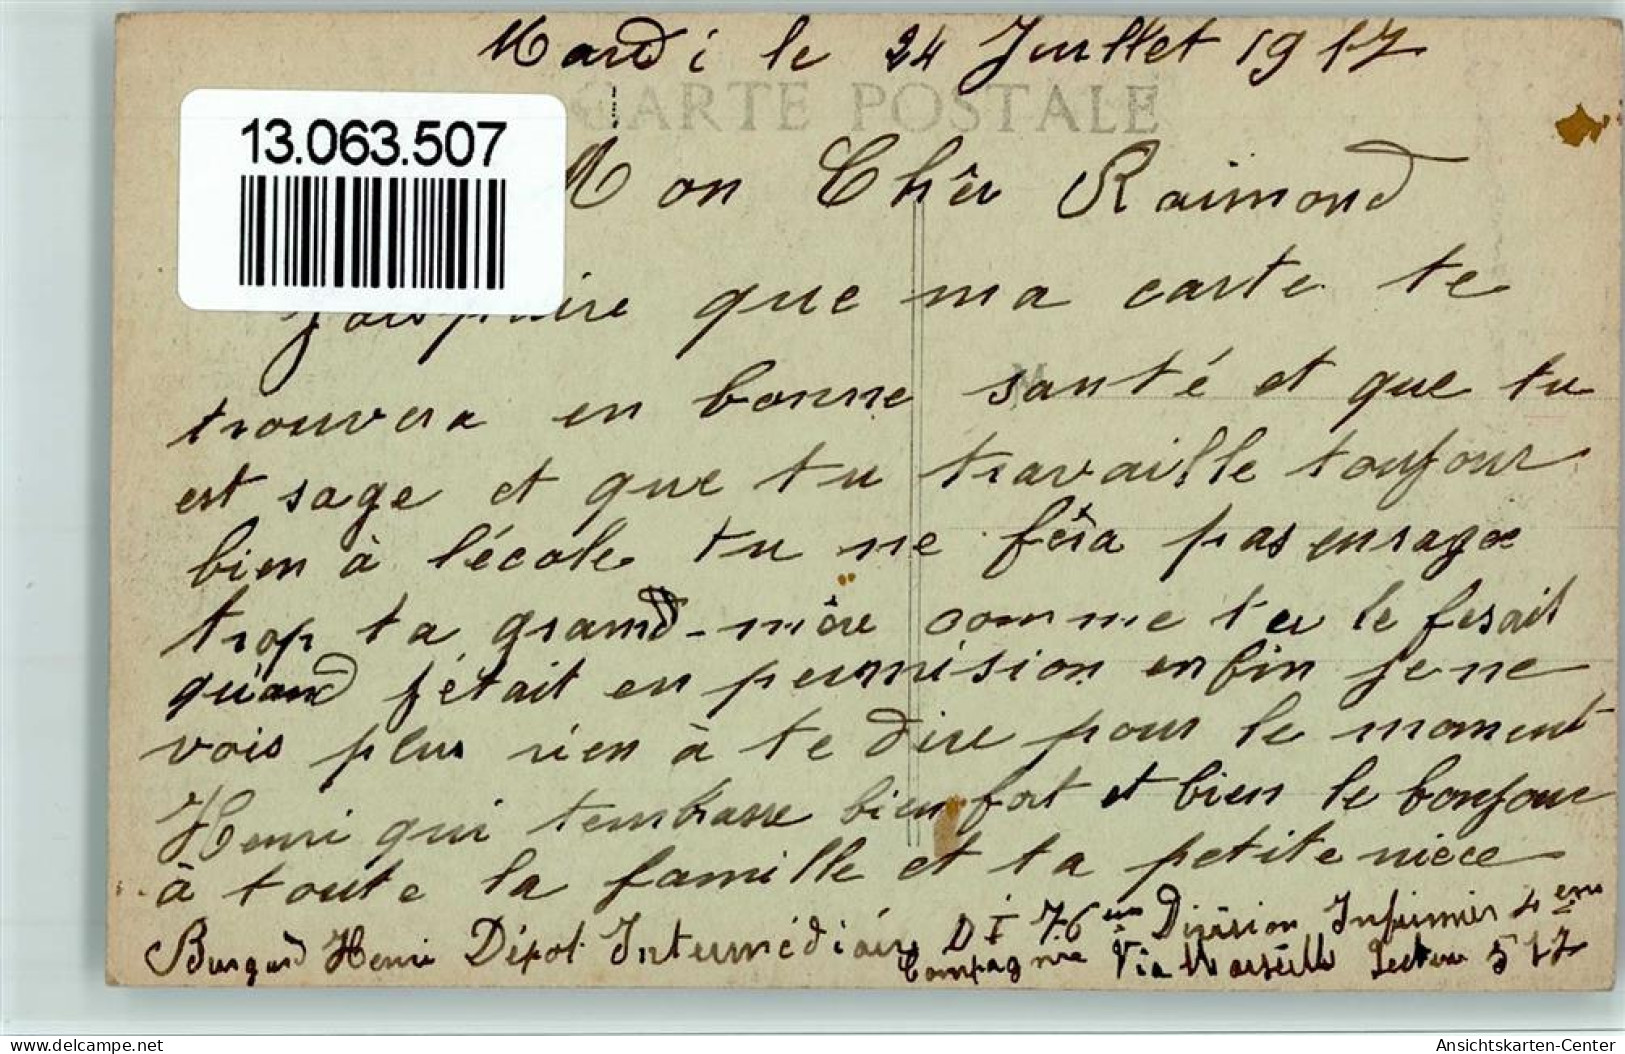 Mardi le 24 Juillet 1917
CARTE POSTALE
13.063.507
Mon Chêr Raimond
que ma carte te
trouvera en bonne santé et que tu
est sage et que tu travaille toujour
bien à l'école tu ne fêra pas enragée
trop ta grand-mère comme tu le fesait
quand j'était en permision enfin je ne
vois plus rien à te dire pour le moment
Henri qui tembrasse bien fort et bien le bonjour
à toute la famille et ta petite niece
Burgard Henri Dépot Intermédiáire D I 76 em Division Infirmier 4 eme
Compagnie Via Marseille Secteur 517
www.delcampe.net
Ansichtskarten-Center